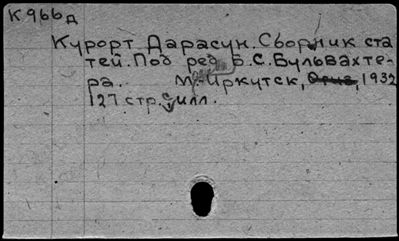 К966д
Курорт Дарасун. Сборник ста
тей. Под ред. Б.С. Бульвахте-
ра. М.-Иркутск, Огиз, 1932
127 стр. с илл.